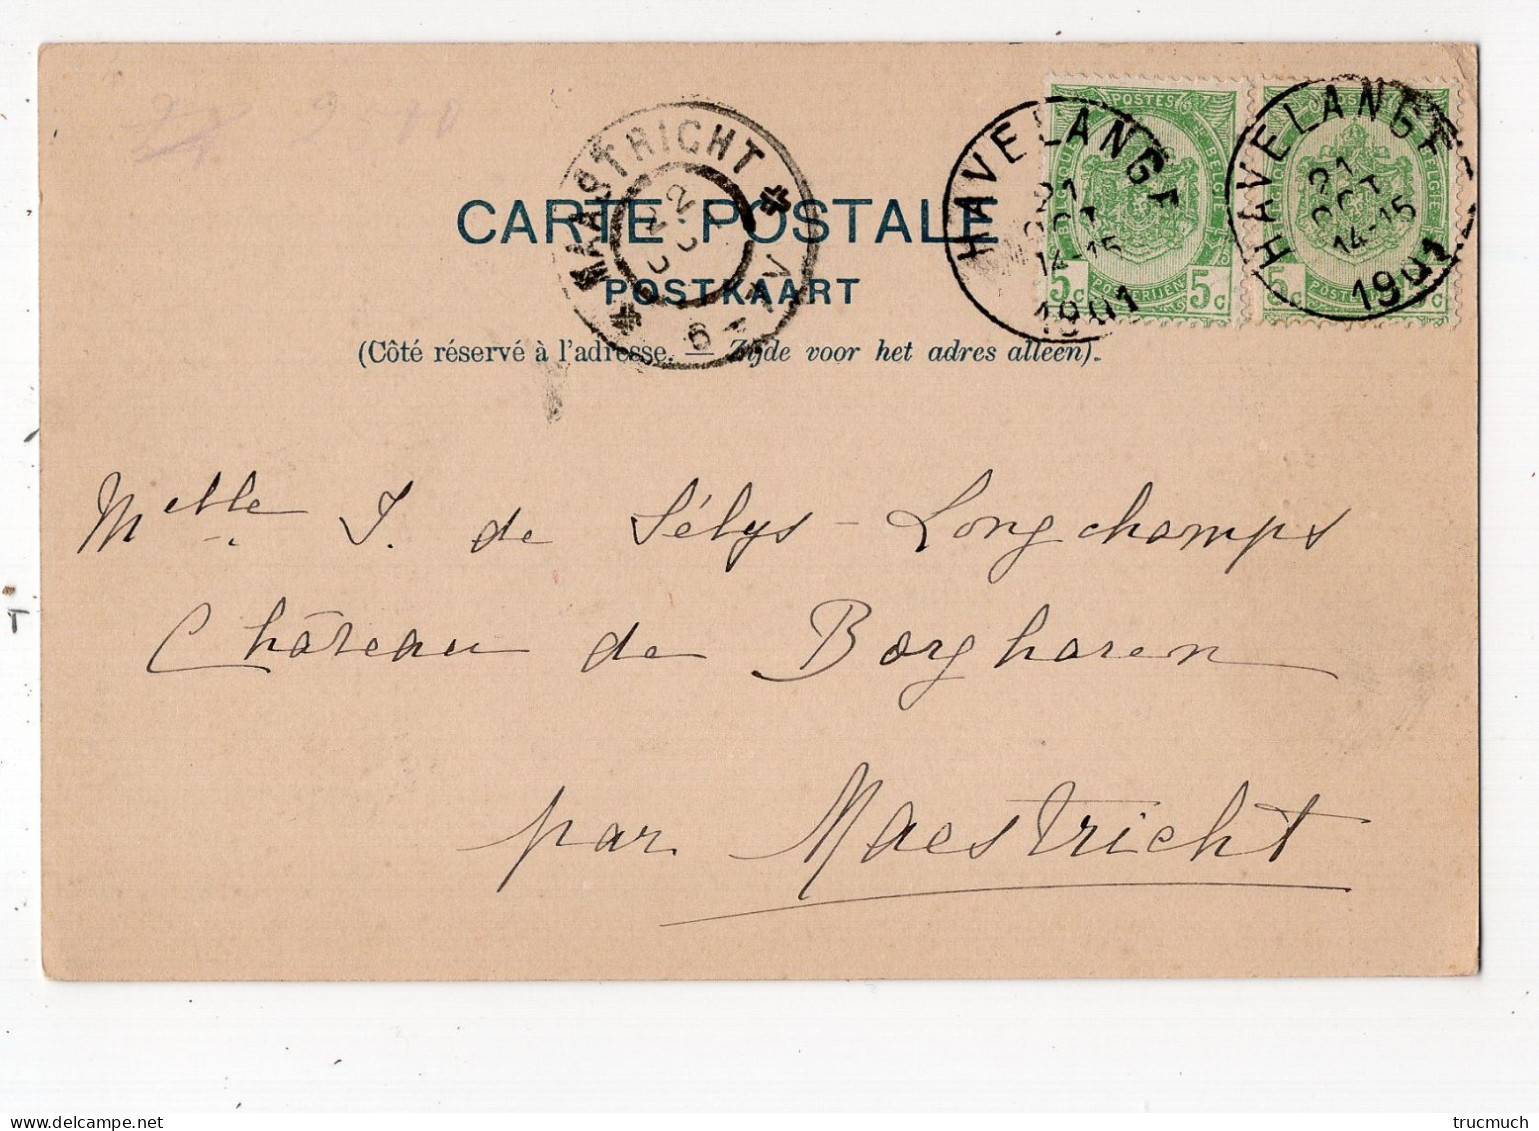 MAASTRICHT
6-7V
22
CARTE POSTALE
POSTKAART
(Côté réservé à l'adresse. — Zijde voor het adres alleen).
POSTES
BELGIQUE
BELGIE
5c POSTERIJEN 5c
HAVELANGE
21
OCT
14-15
1901
HAVELANGE
21
OCT
14-15
1901
Melle J. de Sélys-Longchamps
Château de Borgharen
par Maestricht
trucmuch
www.delcampe.net